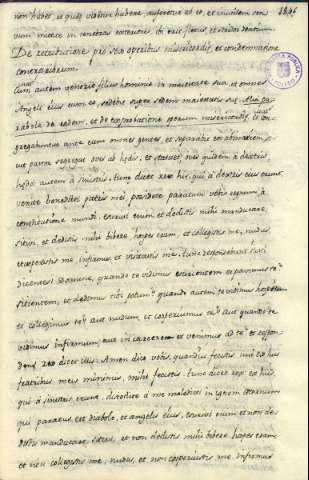 non habet, et quod videtur habere, auferetur ab eo, et inutilem ser-
vum mittite in tenebras exteriores ibi erit fletus et stridor dentium.
De retributione pro operibus misericordiæ, et condemnatione
contrariorum.
Cum autem venerit filius hominis in maiestate sua, et omnes
Angeli eius cum eo, sedebit super sedem maiestatis suæ. Alia pa-
rabola de eadem, et de exprobatione operum misericordiæ. Et con-
gregabuntur ante eum omnes gentes, et separabit eos ab invicem, si-
cut pastor segregat oves ab hædis, et statuet, oves quidem a dextris
hædos autem à sinistris, tunc dicet rex his, qui à dextris eius erunt,
venite benedicti patris mei, possidete paratum vobis regnum à
constitutione mundi. esurivi enim et dedistis mihi manducare,
sitivi, et dedistis mihi bibere, hospes eram, et collegistis me, nudus,
et cooperuistis me, infirmus et visitastis me, tunc respondebunt iusti
dicentes Domine, quando te vidimus esurientem et pavimus te
sitientem, et dedimus tibi potum? quando autem te vidimus hospitem
et collegimus te? aut nudum et cooperuimus te? aut quando te
vidimus infirmum, aut in carcerem et venimus ad te? et respon-
dens rex dicet illis. Amen dico vobis, quandiu fecistis uni ex his
fratribus meis minimis, mihi fecistis, tunc dicet rex et his,
qui à sinistris erunt, discedite à me maledicti in ignem æternum
qui paratus est diabolo, et angelis eius, esurivi enim et non de-
distis manducare, sitivi, et non dedistis mihi bibere, hospes eram,
et non collegistis me, nudus, et non cooperuistis me, infirmus